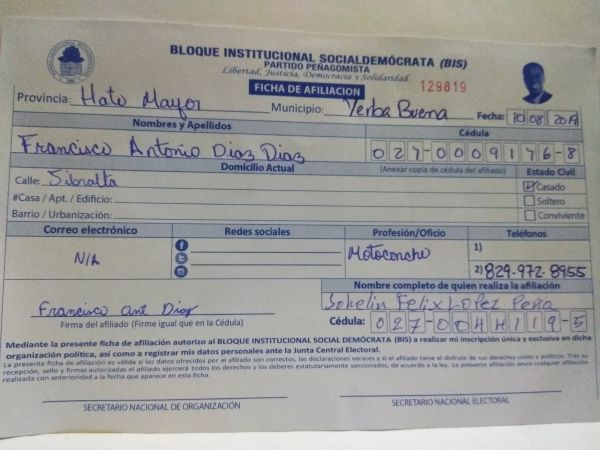 BLOQUE INSTITUCIONAL SOCIALDEMÓCRATA (BIS)
PARTIDO PEÑAGOMISTA
Libertad, Justicia, Democracia y Solidaridad
FICHA DE AFILIACION 129819
Provincia: Hato Mayor Municipio: Yerba Buena Fecha: 10 08 2019
Nombres y Apellidos Cédula
Francisco Antonio Diaz Diaz 027-0009176-8
Domicilio Actual (Anexar copia de cédula del afiliado) Estado Civil
Calle: Casado
#Casa / Apt. / Edificio: Soltero
Barrio / Urbanización: Conviviente
Correo electrónico Redes sociales Profesión/Oficio Teléfonos
N/A Motoconcho 1)
2) 829-972-8955
Nombre completo de quien realiza la afiliación
Francisco Ant Diaz Sokelin Felix Lopez Peña
Firma del afiliado (Firme igual que en la Cédula) Cédula: 027-0044119-5
Mediante la presente ficha de afiliación autorizo al BLOQUE INSTITUCIONAL SOCIAL DEMÓCRATA (BIS) a realizar mi inscripción única y exclusiva en dicha
organización política, así como a registrar mis datos personales ante la Junta Central Electoral.
La presente ficha de afiliación es válida si los datos ofrecidos por el afiliado son correctos, las declaraciones veraces y si el afiliado tiene el disfrute de sus derechos civiles y políticos. Tras su
recepción, sello y firmas autorizadas el afiliado ejercerá todos los derechos y los deberes estatutariamente sancionados, de acuerdo a la ley. La presente afiliación anula cualquier afiliación
realizada con anterioridad a la fecha que aparece en esta ficha.
SECRETARIO NACIONAL DE ORGANIZACIÓN SECRETARIO NACIONAL ELECTORAL